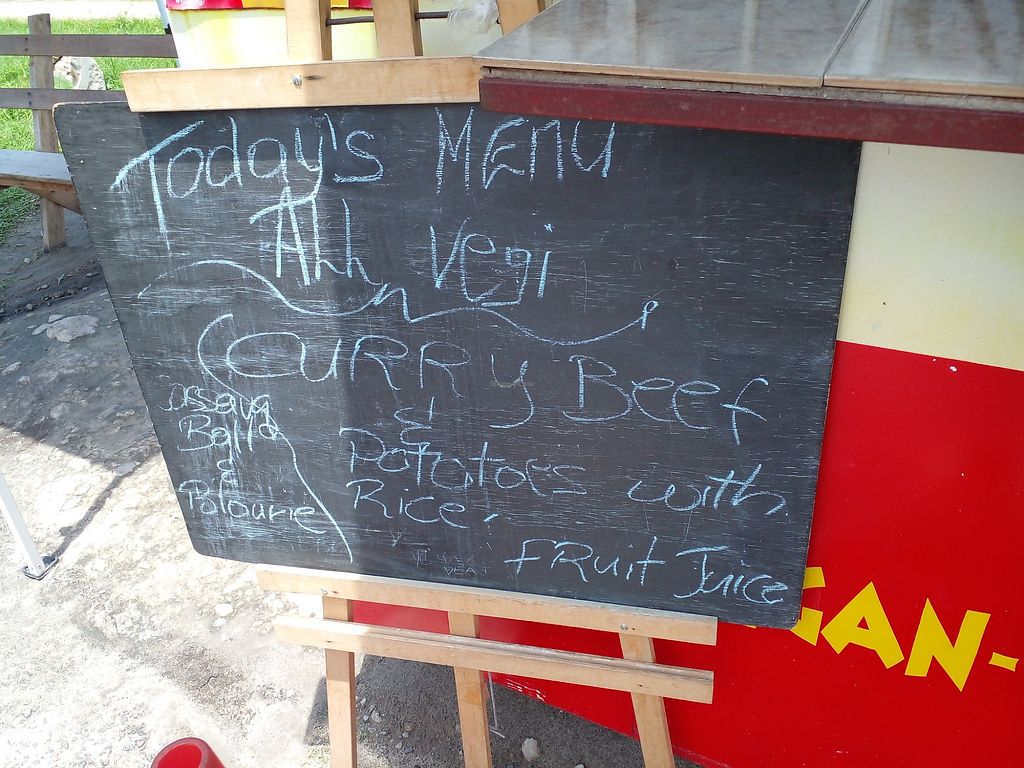 Today's MENU
ALL Vegi
CURRY Beef
&
Potatoes with
Rice.
Fruit Juice
Cassava
Ball
&
Polourie
GAN-